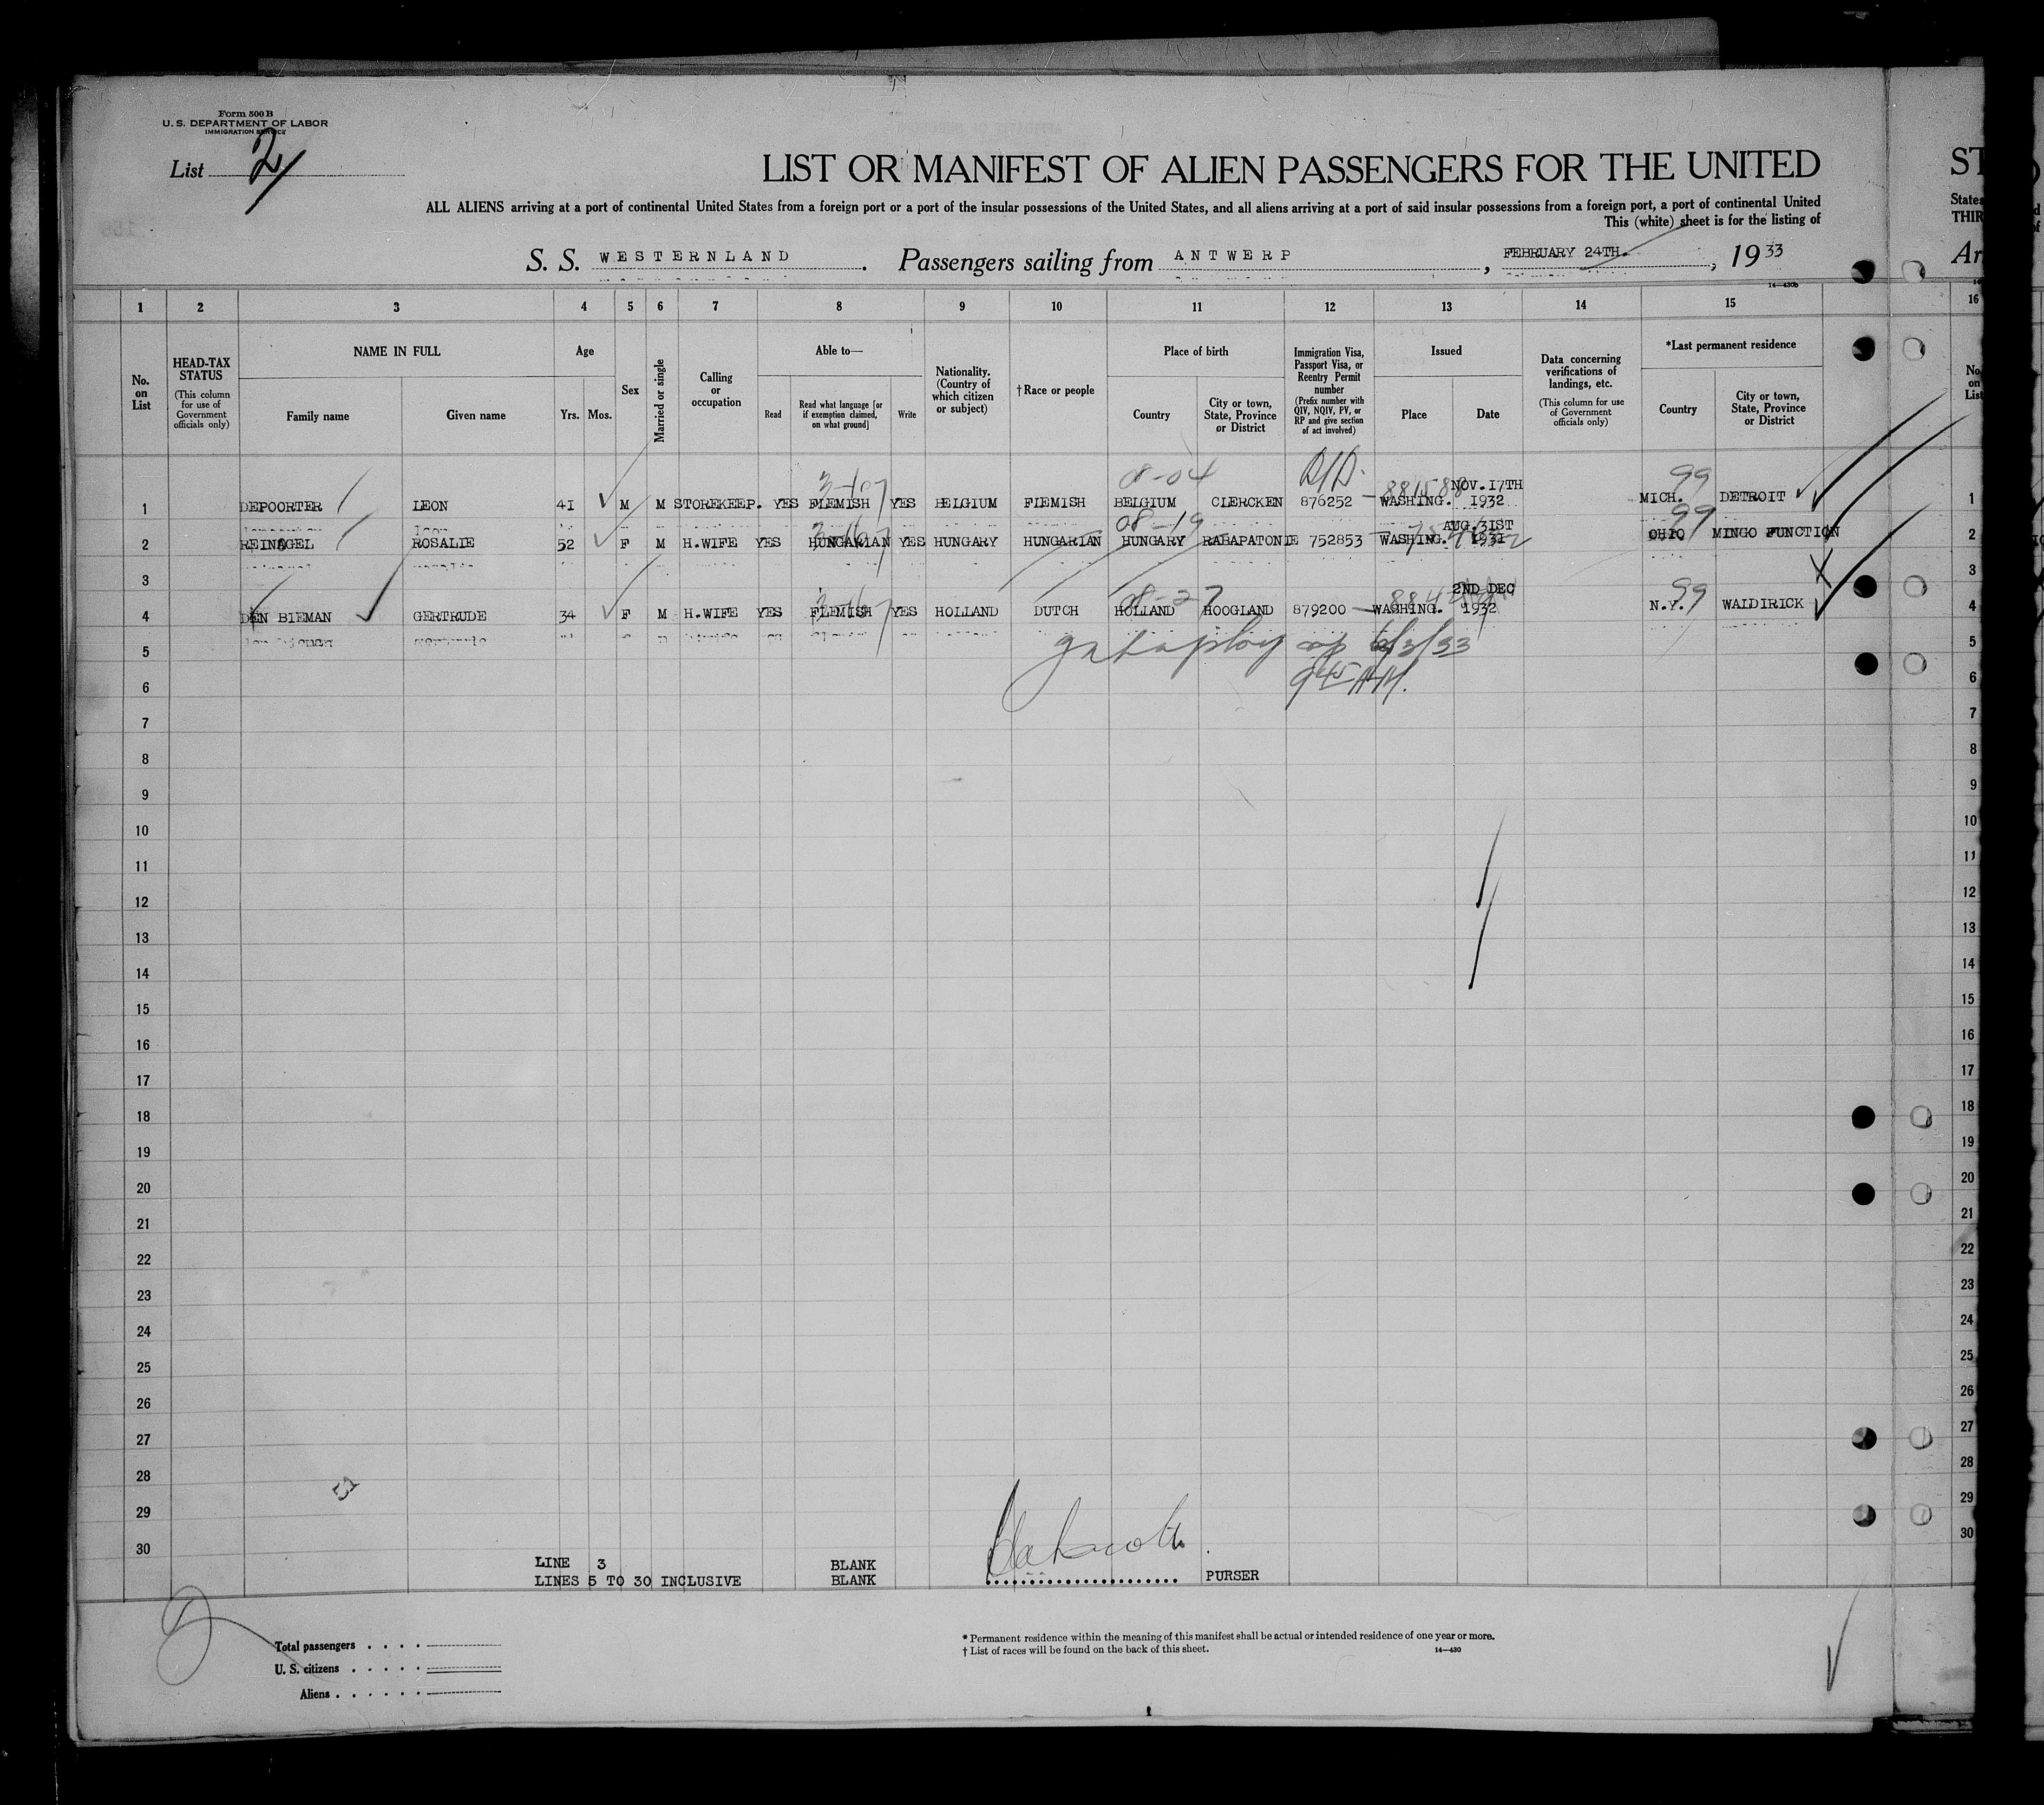 Form 500 B
U. S. DEPARTMENT OF LABOR
IMMIGRATION SERVICE
List 2
LIST OR MANIFEST OF ALIEN PASSENGERS FOR THE UNITED
ST
ALL ALIENS arriving at a port of continental United States from a foreign port or a port of the insular possessions of the United States, and all aliens arriving at a port of said insular possessions from a foreign port, a port of continental United
States
This (white) sheet is for the listing of
THIR
S. S. WESTERNLAND. Passengers sailing from ANTWERP, FEBRUARY 24TH., 1933
Ar
14—430b
1 2 3 4 5 6 7 8 9 10 11 12 13 14 15 16
No. on List
HEAD-TAX STATUS (This column for use of Government officials only)
NAME IN FULL
Family name
Given name
Age
Yrs.
Mos.
Sex
Married or single
Calling or occupation
Able to—
Read
Read what language [or if exemption claimed, on what ground]
Write
Nationality. (Country of which citizen or subject)
† Race or people
Place of birth
Country
City or town, State, Province or District
Immigration Visa, Passport Visa, or Reentry Permit number (Prefix number with QIV, NQIV, PV, or RP and give section of act involved)
Issued
Place
Date
Data concerning verifications of landings, etc. (This column for use of Government officials only)
*Last permanent residence
Country
City or town, State, Province or District
No. on List
08-04 99
1 DEPOORTER LEON 41 M M STOREKEEP. YES FLEMISH YES BELGIUM FLEMISH BELGIUM CLERCKEN 876252 WASHING. NOV.17TH 1932 MICH. DETROIT 1
08-19 99
2 REINAGEL ROSALIE 52 F M H.WIFE YES HUNGARIAN YES HUNGARY HUNGARIAN HUNGARY RABAPATONIE 752853 WASHING. AUG.31ST 1931 OHIO MINGO FUNCTION 2
3 3
08-27 99
4 DEN BIEMAN GERTRUDE 34 F M H.WIFE YES FLEMISH YES HOLLAND DUTCH HOLLAND HOOGLAND 879200 WASHING. 2ND DEC 1932 N.Y. WALDIRICK 4
5 5
945 AM.
6 6
7 7
8 8
9 9
10 10
11 11
12 12
13 13
14 14
15 15
16 16
17 17
18 18
19 19
20 20
21 21
22 22
23 23
24 24
25 25
26 26
27 27
28 28
29 29
30 30
LINE 3 BLANK
LINES 5 TO 30 INCLUSIVE BLANK
PURSER
Total passengers
U. S. citizens
Aliens
* Permanent residence within the meaning of this manifest shall be actual or intended residence of one year or more.
† List of races will be found on the back of this sheet.
14—430